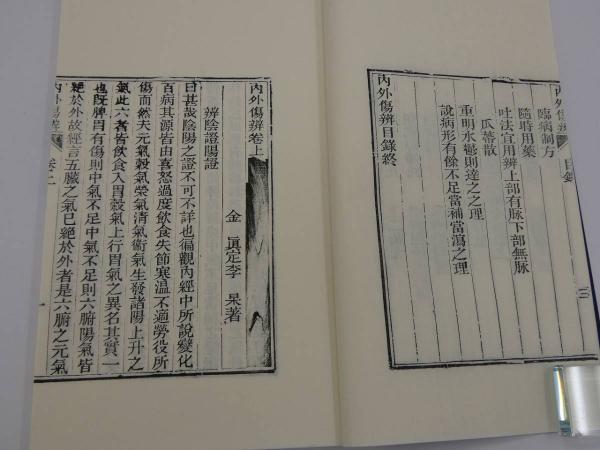 臨病制方
隨時用藥
吐法宜用辨上部有脉下部無脉
瓜蔕散
重明木鬱則達之之理
說病形有餘不足當補當瀉之理
內外傷辨目錄終
內外傷辨卷上
金 眞定李 杲著
辨陰證陽證
曰甚哉陰陽之證不可不詳也徧觀內經中所說變化
百病其源皆由喜怒過度飲食失節寒溫不適勞役所
傷而然夫元氣榖氣榮氣清氣衞氣生發諸陽上升之
氣此六者皆飲食入胃榖氣上行胃氣之異名其實一
也既脾胃有傷則中氣不足中氣不足則六腑陽氣皆
絕於外故經言五臟之氣已絕於外者是六腑之元氣